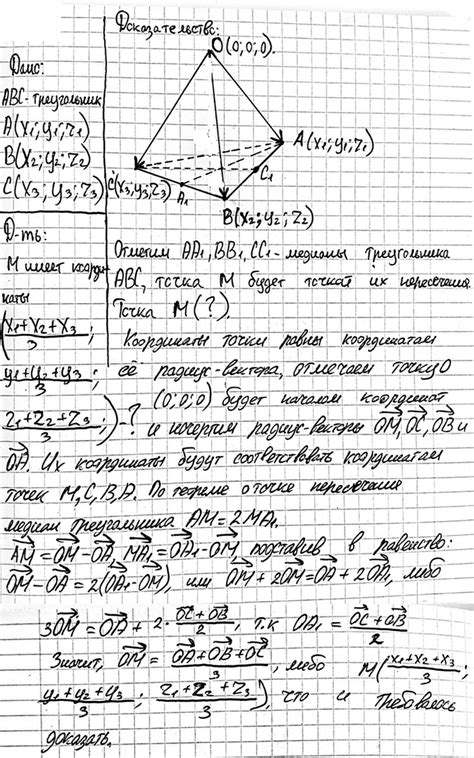 Доказательство:
O(0;0;0).
Дано:
ABC-треугольник
A(x₁;y₁;z₁)
B(x₂;y₂;z₂)
C(x₃;y₃;z₃)
A(x₁;y₁;z₁)
C(x₃;y₃;z₃)
A₁
C₁
B(x₂;y₂;z₂)
Д-ть:
M имеет коорди-
наты
(x₁+x₂+x₃/3;
y₁+y₂+y₃/3;
z₁+z₂+z₃/3;)-?
Отметим AA₁, BB₁, CC₁-медианы треугольника
ABC, точка M будет точкой их пересечения.
Точка M(?).
Координаты точки равны координатам
её радиус-вектора, отмечаем точку O
(0;0;0) будет началом координат
и начертим радиус-векторы OM, OC, OB и
OA. Их координаты будут соответствовать координатам
точек M, C, B, A. По теореме о точке пересечения
медиан треугольника AM=2MA₁.
AM=OM-OA, MA₁=OA₁-OM, подставив в равенство:
OM-OA=2(OA₁-OM), или OM+2OM=OA+2OA₁, либо
3OM=OA+2·OC+OB/2, т.к OA₁=OC+OB/2
Значит, OM=OA+OB+OC/3, либо M(x₁+x₂+x₃/3;
y₁+y₂+y₃/3; z₁+z₂+z₃/3), что и требовалось
доказать.